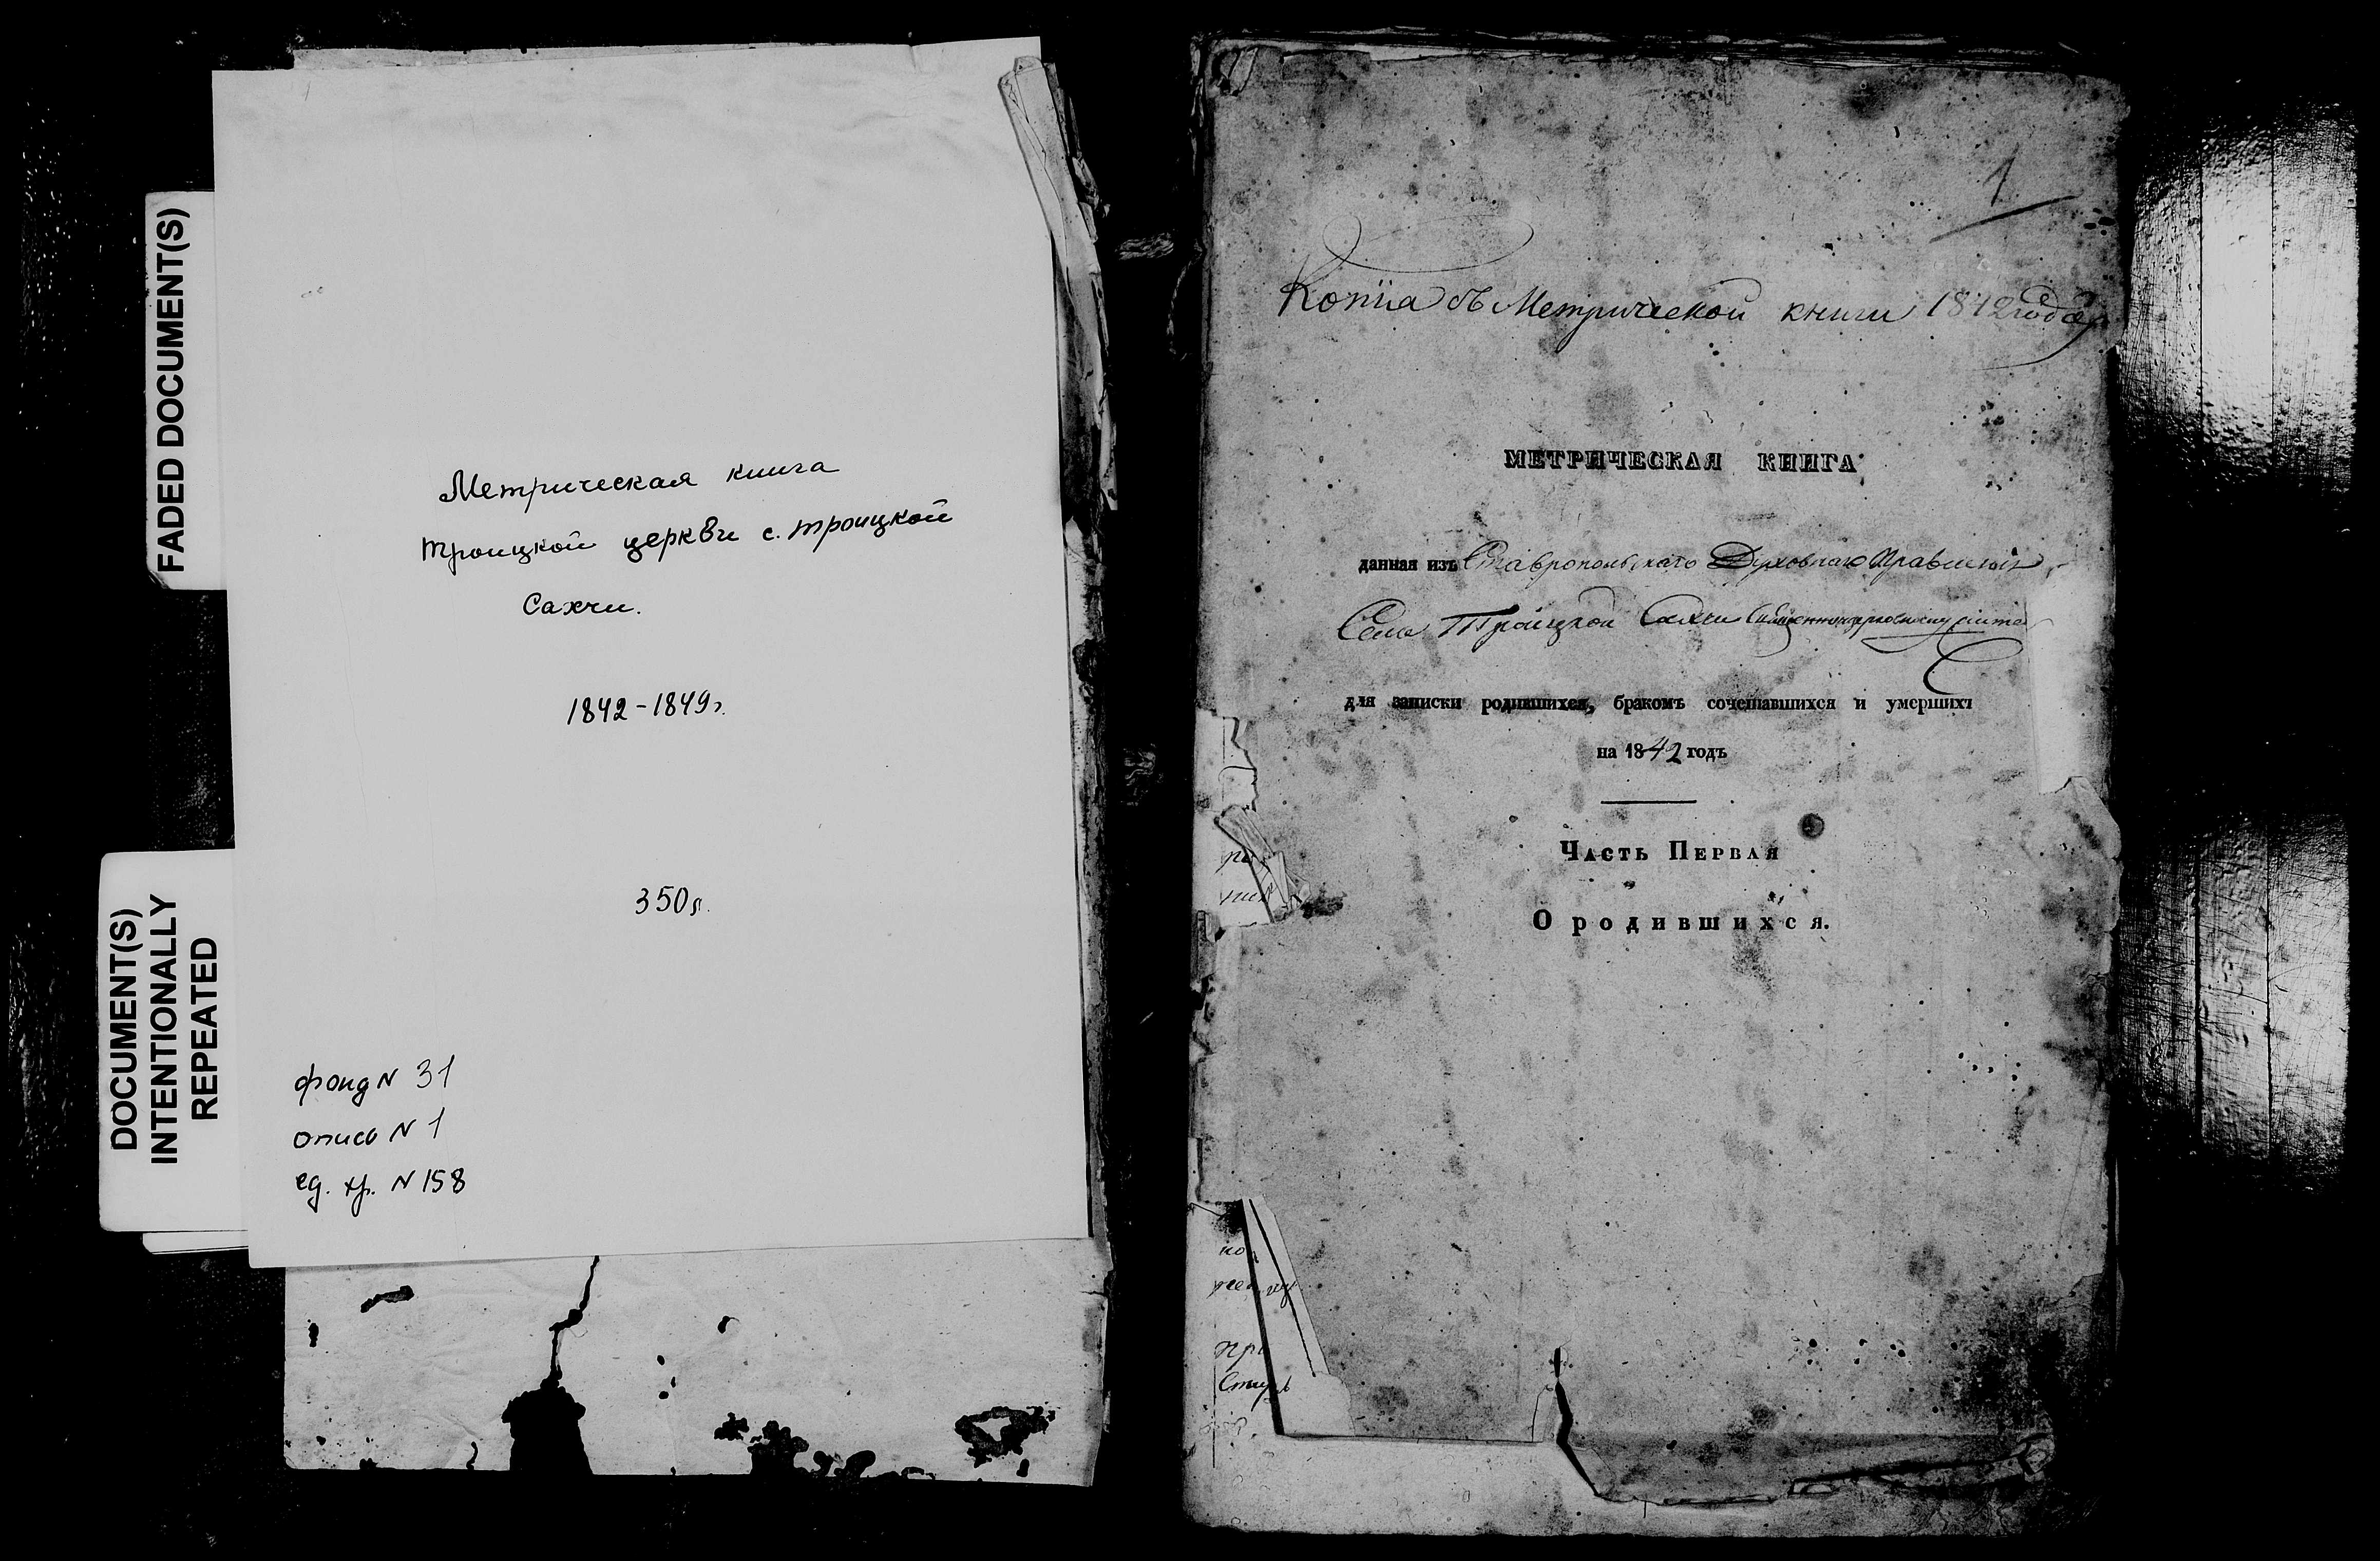 FADED DOCUMENT(S)
DOCUMENT(S)
INTENTIONALLY
REPEATED
Метрическая книга
Троицкой церкви с. Троицкой
Сахчи.
1842-1849г.
350л.
фонд N 31
опись N 1
ед. хр. N 158
1
Копiia съ Метрической книги 1842 года
МЕТРИЧЕСКАЯ КНИГА
данная изъ Ставропольскаго Духовнаго Правленiя
Села Троицкой Сахчи Священноцерковнослужите
для записки родившихся, бракомъ сочетавшихся и умершихъ
на 1842 годъ
Часть Первая
О родившихся.
но
при